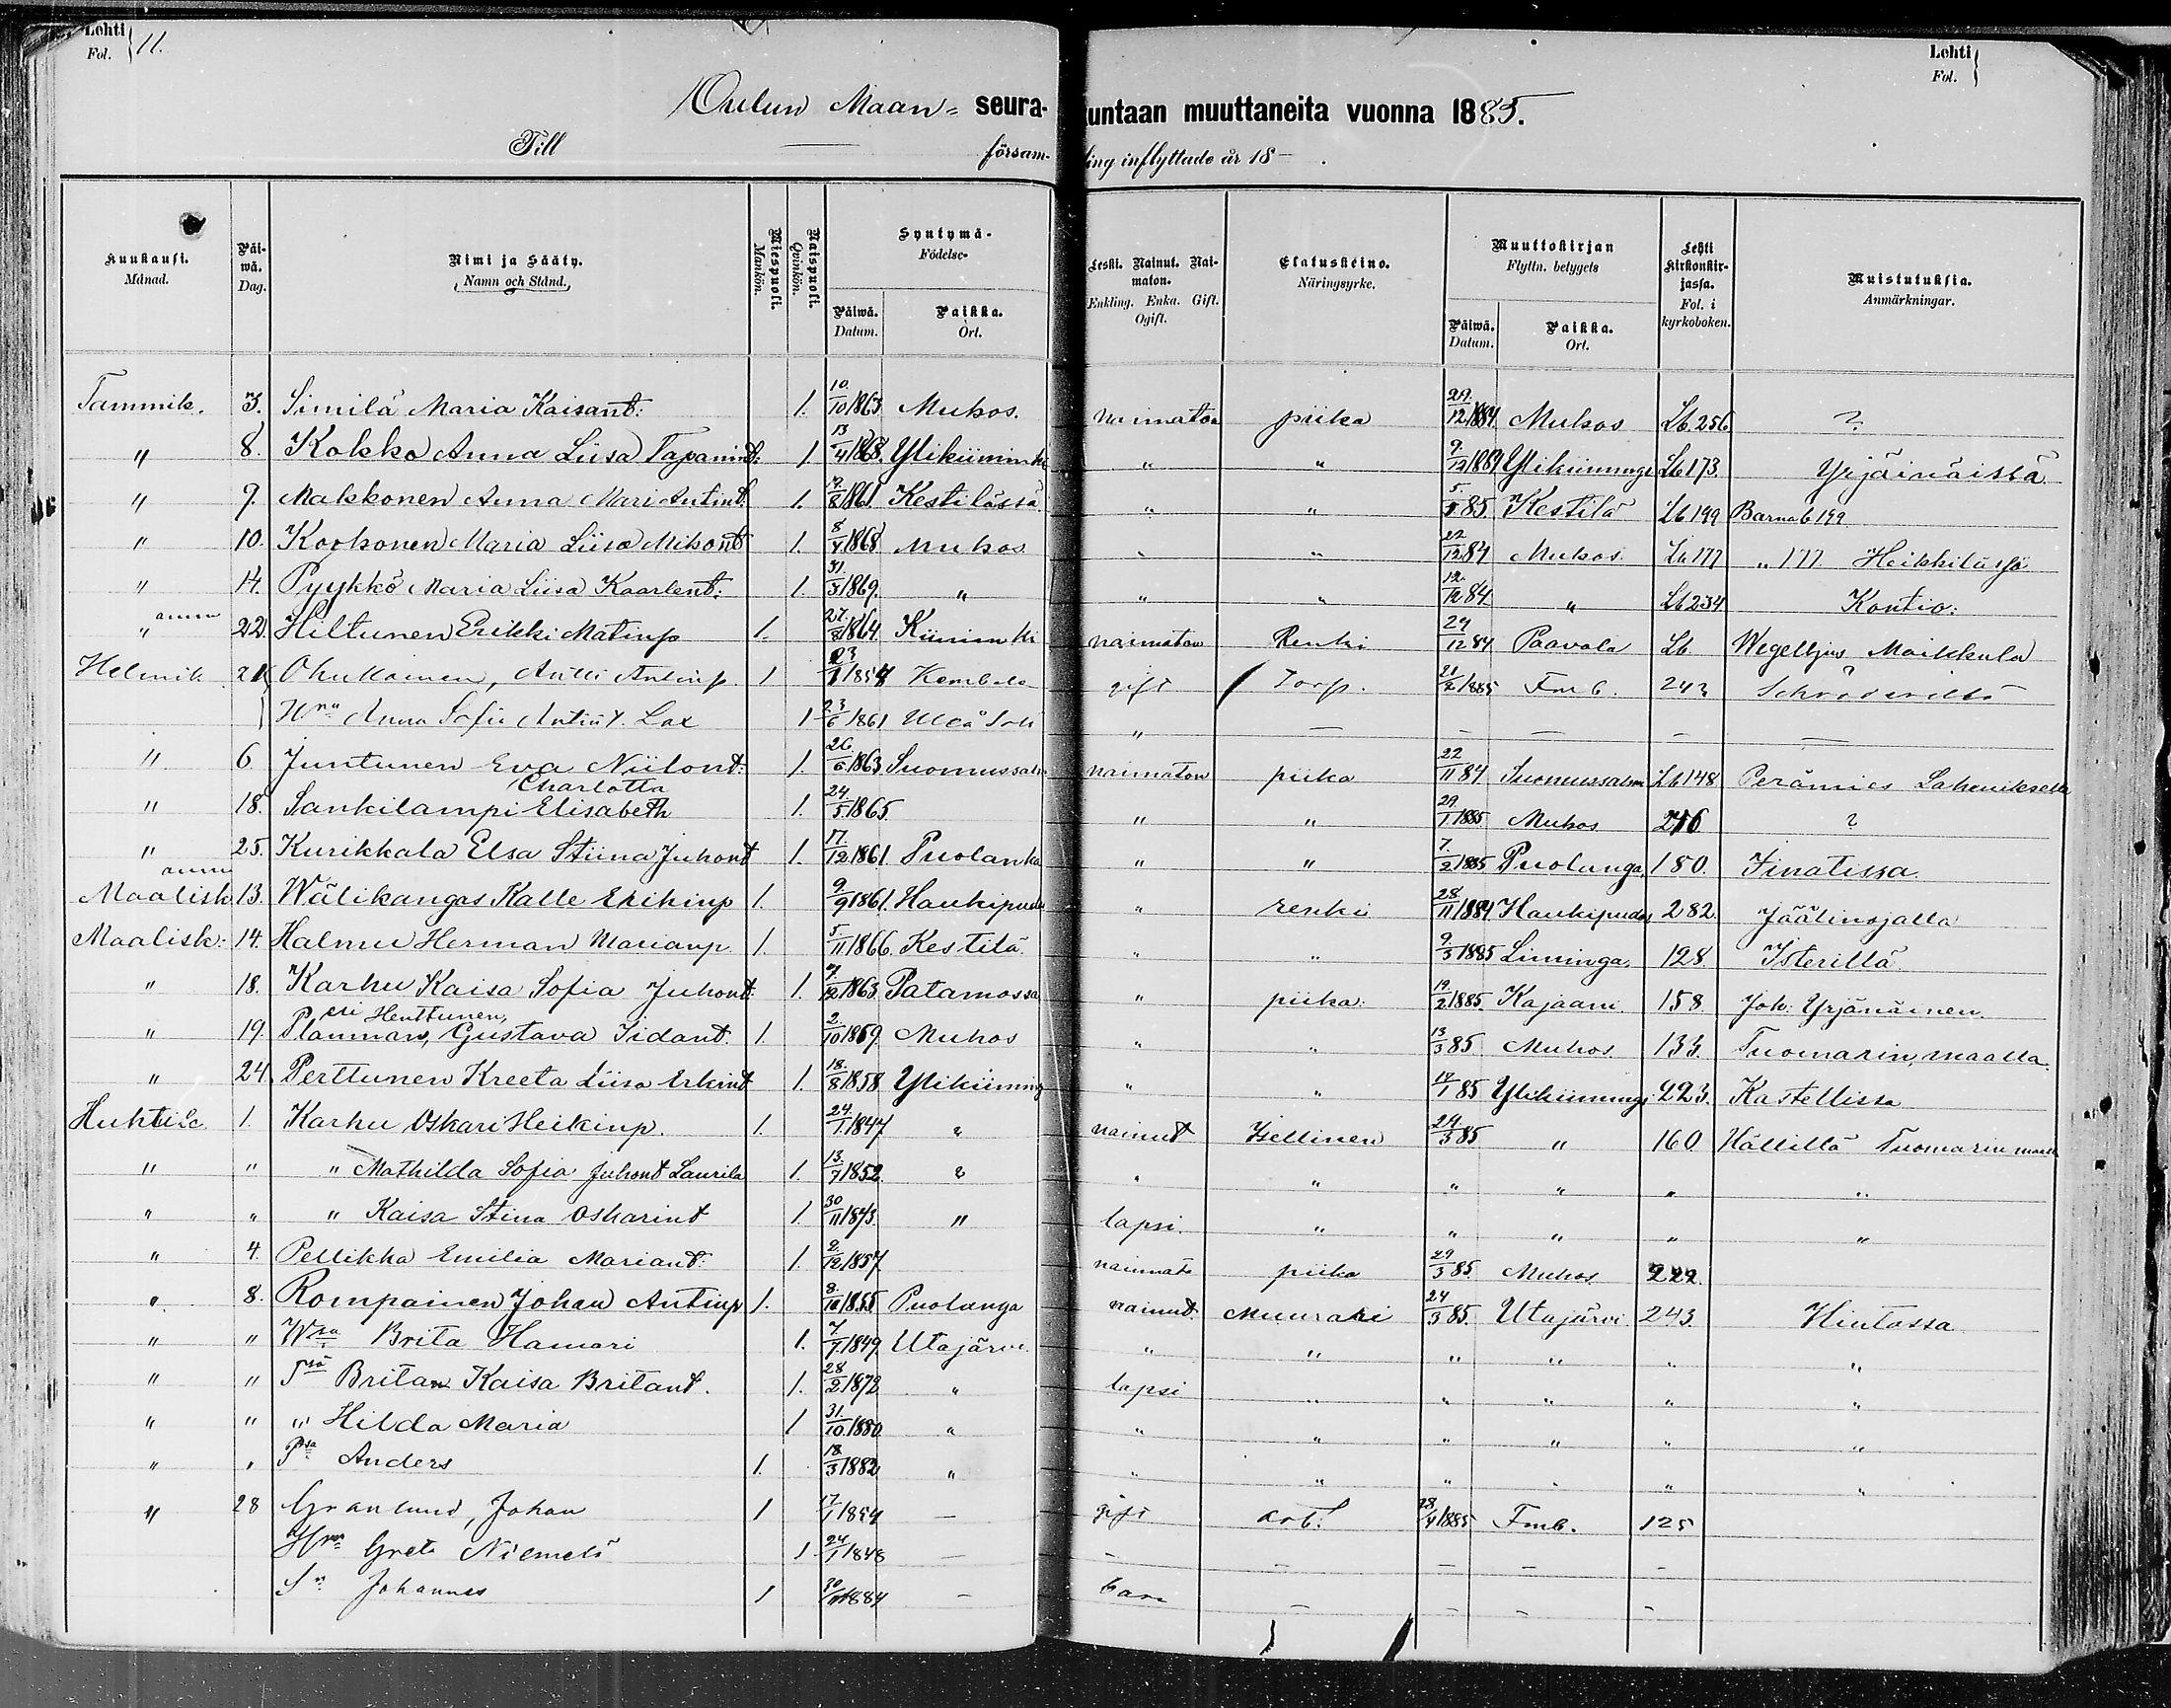 Lehti Fol. 11.
Lehti Fol.
Oulun Maan- seurakuntaan muuttaneita vuonna 1885.
Till — församling inflyttade år 18 — .
Kuukausi. Månad. Päiwä. Dag. Nimi ja Sääty. Namn och Stånd. Miespuoli. Mankön. Naispuoli. Qvinkön. Syntymä- Födelse- Päiwä. Datum. Paikka. Ort. Leski. Nainut. Naimaton. Enkling. Enka. Gift. Ogift. Elatuskeino. Näringsyrke. Muuttokirjan Flyttn. betygets Päiwä. Datum. Paikka. Ort. Lehti kirkonkirjassa. Fol. i kyrkoboken. Muistutuksia. Anmärkningar.
Tammik. 3. Similä Maria Kaisant: 1. 10/10 1863 Muhos. naimaton piika 29/12 1884 Muhos Lb 256 ?
" 8. Kokko Anna Liisa Tapanint: 1. 13/4 1868. Ylikiiminki " " 9/12 1884 Ylikiiminge Lb 173. Yrjäinäistä
" 9. Makkonen Anna Mari Antint. 1. 8 1861. Kestilässä " " 5. 85. Kestilä Lb 199 Barnab 199
" 10. Korhonen Maria Liisa Mikont 1. 8/4 1868 Muhos " " 22/12 84 Muhos Lb 177 " 177 Heikkilässä
" 14. Pyykkö Maria Liisa Kaarlent: 1. 31/3 1869. " " " 12/12 84 " Lb 234 Kontio:
" 22. Hiltunen Erikki Matinp 1. 27/8 1864. Kiiminki naimaton Renki 29/12 84 Paavola Lb Wegelljus Maikkula
Helmik. 21. Ohukainen, Antti Antinp. 1 23 1854 Kembele gift Torp. 21/2 1885 Fmb. 243 Schröderillä
Hru Anna Sofia Lax 1 23/6 1861 Uleå " — — — — —
" 6 Juntunen Eva Niilont: 1. 26/6 1863 Suomussalmi naimaton piika 22/11 84 Suomussalmi Lb 148 Perämies
Charlotta
" 18. Sankilampi Elisabeth 1. 24/5 1865 " " 29/1 1885 Muhos 216 ?
" 25. Kurikkala Elsa Stiina Juhont 1. 17/12 1861. Puolanka " " 7/2 1885 Puolanga 180. Iinatissa
Maalisk 13. Wälikangas Kalle Erikinp 1. 9/9 1861. Haukipudas " renki 28/11 1884 Haukipudas 282 Jäälinojalla
Maalisk: 14. Halmu Herman Marianp. 1. 5/11 1866. Kestilä " " 9/3 1885 Liminga. 128. Isterillä
" 18. Karhu Kaisa Sofia Juhont: 1. 7/12 1863 Paltamossa " piika: 19/2 1885. Kajaani 158 Joh: Yrjänäinen.
eli Henttunen,
" 19. Planman, Gustava Iidant. 1. 2/10 1869 Muhos " " 13/3 85 Muhos. 133. Tuomarin maalla.
" 24. Perttunen Kreeta Liisa Erkint 1. 18/8 1858 Ylikiiming " " 85 Ylikiiminge 223. Kastellissa
Huhtik. 1. Karhu Oskari Heikinp. 1. 24/1 1847 " nainut Itsellinen 24/3 85 " 160 Hällillä Tuomarin maalla
" " " Mathilda Sofia Juhont Laurila 1. 13/7 1852. " " " " " " "
" " " Kaisa Stina Oskarint 1. 30/11 1873. " lapsi. " " " " "
" 4. Pellikka Emilia Mariant: 1. 2/12 1857 piika 29/3 85 Muhos 222
" 8. Rompainen Johan Antinp 1. 8/10 1855 Puolanga nainut. Muurari 24/3 85. Utajärvi 243. Hintassa
" " Wsa Brita Hamari 1. 7/7 1849 Utajärvi " " " " " "
" " Tsä Britan Kaisa Britant. 1. 28/2 1872 " lapsi " " " " "
" " " Hilda Maria 1 31/10 1880 " " " " " " "
" " Psa Anders 1. 18/3 1882 " " " " " " "
" 28 Granlund, Johan 1 17/1 1854 — gift arb. 28/4 1885 Fmb. 125
Hru Greta Niemelä 1 24/1 1848 — — — — — —
Sn Johannes 1 30/11 1884 — barn — — — —